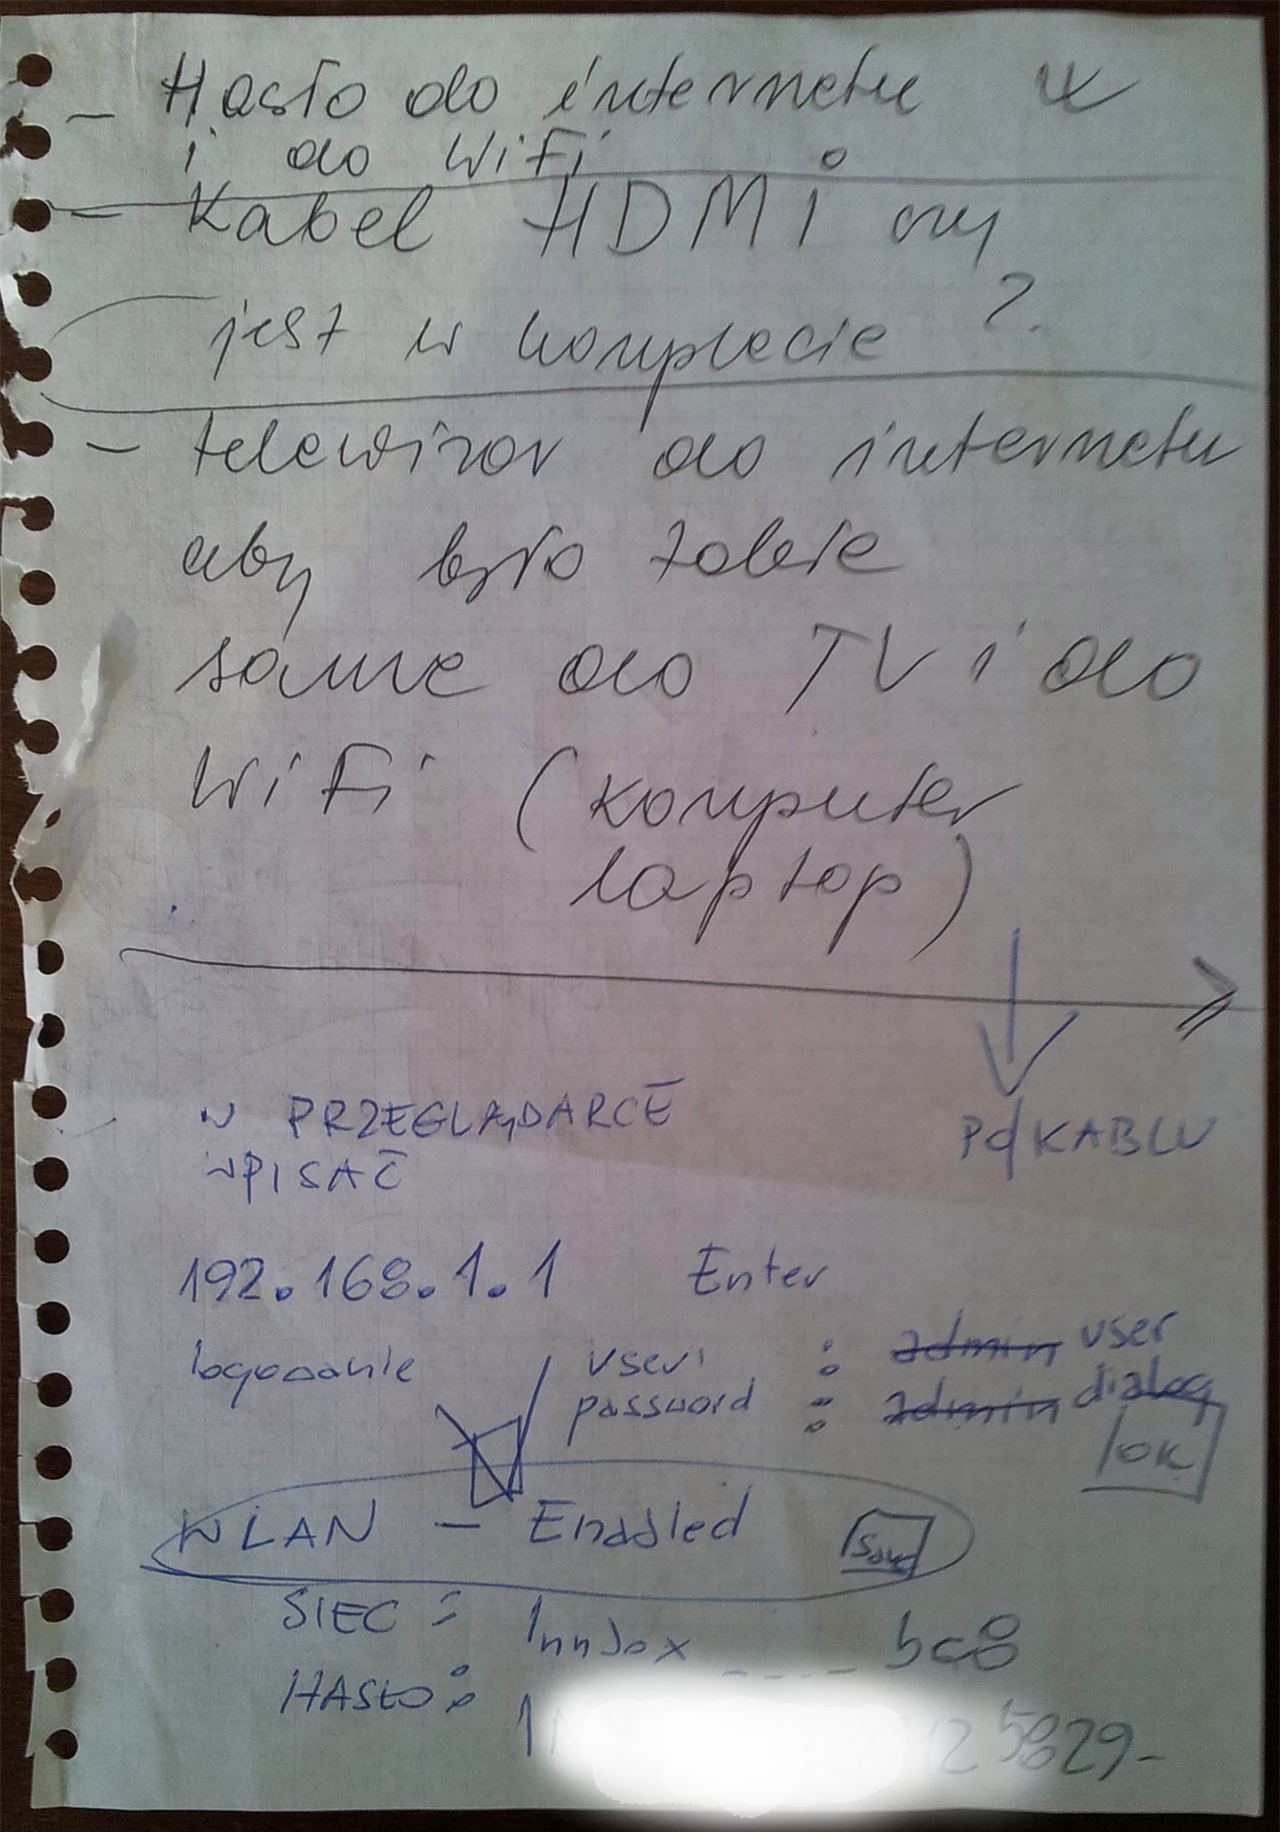 - Hasło do internetu
i do WiFi
- Kabel HDMi czy
jest w komplecie ?
- telewizor do internetu
aby było takie
same do TV i do
WiFi (komputer
laptop)
PO KABLU
W PRZEGLĄDARCE
WPISAĆ
192.168.1.1 Enter
logowanie user : admin user
password : admin dialog
OK
WLAN - Enabled Save
SIEC : Innbox ---- bc8
HASŁO : 1 125829-